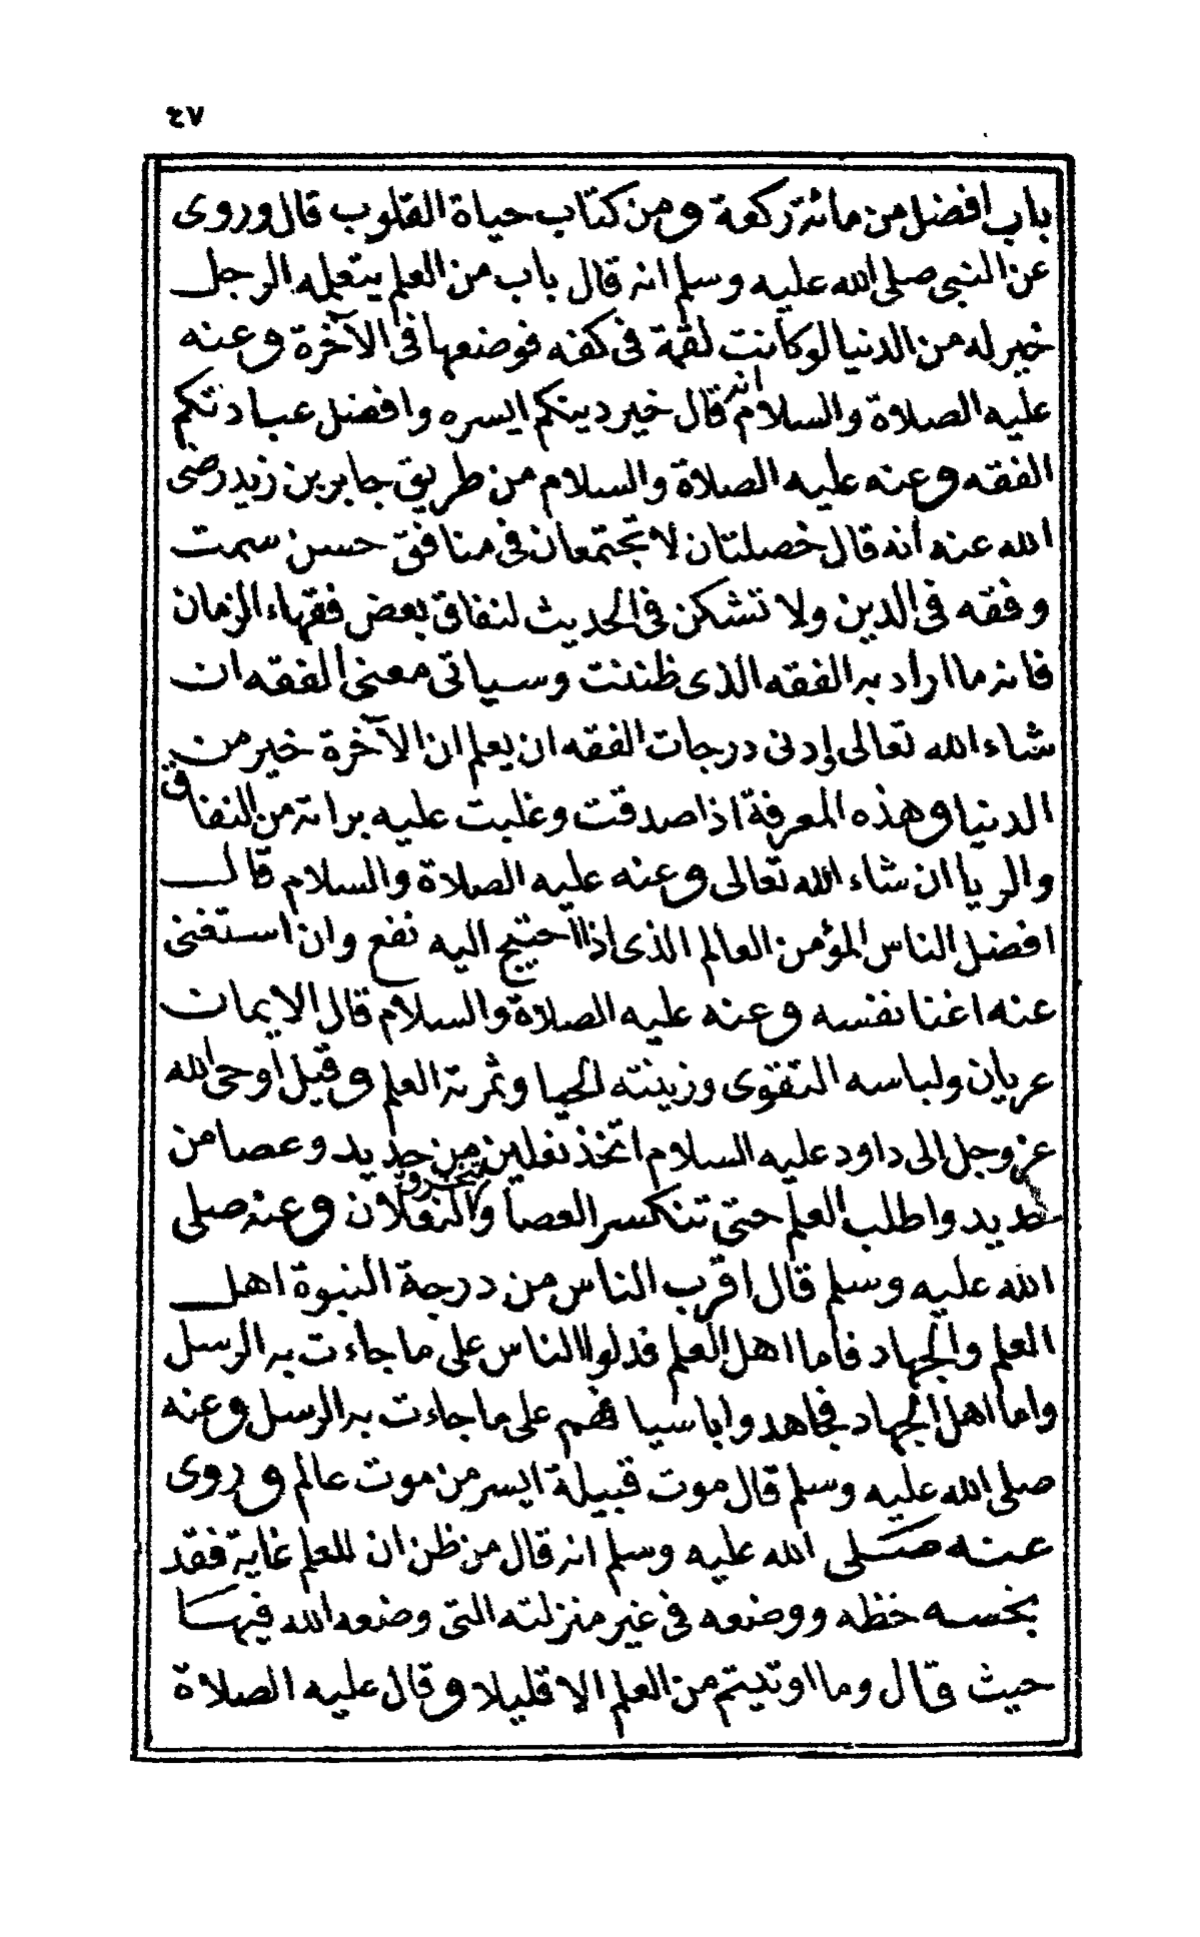 ٤٧
باب افضل من مائة ركعة ومن كتاب حياة القلوب قال وروى
عن النبى صلى الله عليه وسلم انه قال باب من العلم يتعلمه الرجل
خير له من الدنيا لو كانت لقمة فى كفه فوضعها فى الآخرة وعنه
عليه الصلاة والسلام انه قال خير دينكم ايسره وافضل عبادتكم
الفقه وعنه عليه الصلاة والسلام من طريق جابر بن زيد رضى
الله عنه انه قال خصلتان لا تجتمعان فى منافق حسن سمت
وفقه فى الدين ولا تشكن فى الحديث لنفاق بعض فقهاء الزمان
فانه ما اراد به الفقه الذى ظننت وسياتى معنى الفقه ان
شاء الله تعالى وادنى درجات الفقه ان يعلم ان الآخرة خير من
الدنيا وهذه المعرفة اذا صدقت وغلبت عليه براته من النفاق
والريا ان شاء الله تعالى وعنه عليه الصلاة والسلام قال
افضل الناس المؤمن العالم الذى اذا احتيج اليه نفع وان استغنى
عنه اغنا نفسه وعنه عليه الصلاة والسلام قال الايمان
عريان ولباسه التقوى وزينته الحيا وثمرته العلم وقيل اوحى الله
عز وجل الى داود عليه السلام اتخذ نعلين من حديد وعصا من
حديد واطلب العلم حتى تنكسر العصا وتنخرق النعلان وعنه صلى
الله عليه وسلم قال اقرب الناس من درجة النبوة اهل
العلم والجهاد فاما اهل العلم فدلوا الناس على ما جاءت به الرسل
واما اهل الجهاد فجاهدوا باسيافهم على ما جاءت به الرسل وعنه
صلى الله عليه وسلم قال موت قبيلة ايسر من موت عالم وروى
عنه صلى الله عليه وسلم انه قال من ظن ان للعلم غاية فقد
بخسه حظه ووضعه فى غير منزلته التى وضعه الله فيها
حيث قال وما اوتيتم من العلم الا قليلا وقال عليه الصلاة